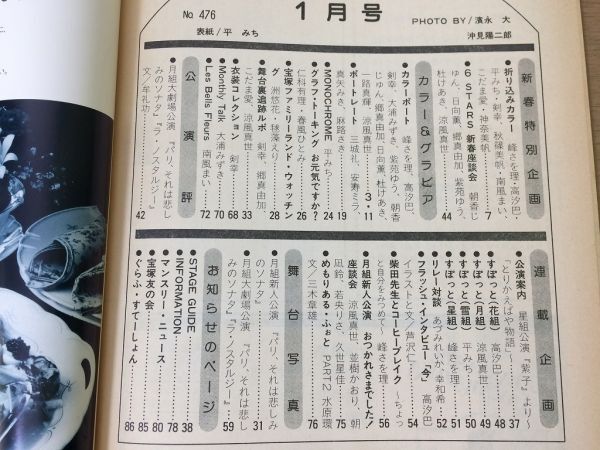 No. 476
1月号
表紙/平 みち
PHOTO BY/濱永 大
沖見陽二郎
新春特別企画
●折り込みカラー 峰さを理・高汐巴・
平みち・剣幸・秋篠美帆・南風まい・
こだま愛・神奈美帆 7
●6 STARS 新春座談会 朝香じ
ゅん、日向薫、郷真由加、紫苑ゆう、
杜けあき、涼風真世 44
カラー&グラビア
●カラーポート 峰さを理、高汐巴、
剣幸、大浦みずき、紫苑ゆう、朝香
じゅん、郷真由加、日向薫、杜けあき、
一路真輝、涼風真世 3・11
●ポートレート 三城礼、安寿ミラ、
真矢みき、麻路さき 19
●MONOCHROME 平みち 24
●グラフ・トーキング お元気ですか?
仁科有理・春風ひとみ 26
●宝塚ファミリーランド・ウォッチン
グ 洲悠花・毬藻えり 28
●舞台裏追跡ルポ 剣幸、郷真由加
こだま愛、涼風真世 33
●衣装コレクション 剣幸 68
●Monthly Talk 大浦みずき 70
●Les Bells Fleurs 南風まい 72
公演評
月組大劇場公演『パリ、それは悲し
みのソナタ』『ラ・ノスタルジー』
文/牟礼功 42
連載企画
●公演案内 星組公演『紫子』より〜
「とりかえばや物語」 37
●すぽっと(花組) 高汐巴 48
●すぽっと(月組) 涼風真世 49
●すぽっと(雪組) 平みち 50
●すぽっと(星組) 峰さを理 51
●リレー対談 あづみれいか、幸和希 52
●フラッシュ・インタビュー「今」 高汐巴
イラストと文/芦沢仁 54
●柴田先生とコーヒーブレイク 〜ちょっ
と自分をみつめて〜 峰さを理 56
●月組新人公演 おつかれさまでした!
座談会 涼風真世、並樹かおり、朝
凪鈴、若央りさ、久世星佳 75
●めもりある・ふぉと PART2 水原環
文/三木章雄 76
舞台写真
月組新人公演『パリ、それは悲しみ
のソナタ』 31
月組大劇場公演『パリ、それは悲し
みのソナタ』『ラ・ノスタルジー』 59
お知らせのページ
●STAGE GUIDE 38
●INFORMATION 78
●マンスリー・ニュース 80
●宝塚友の会 85
●ぐらふ・すてーしょん 86